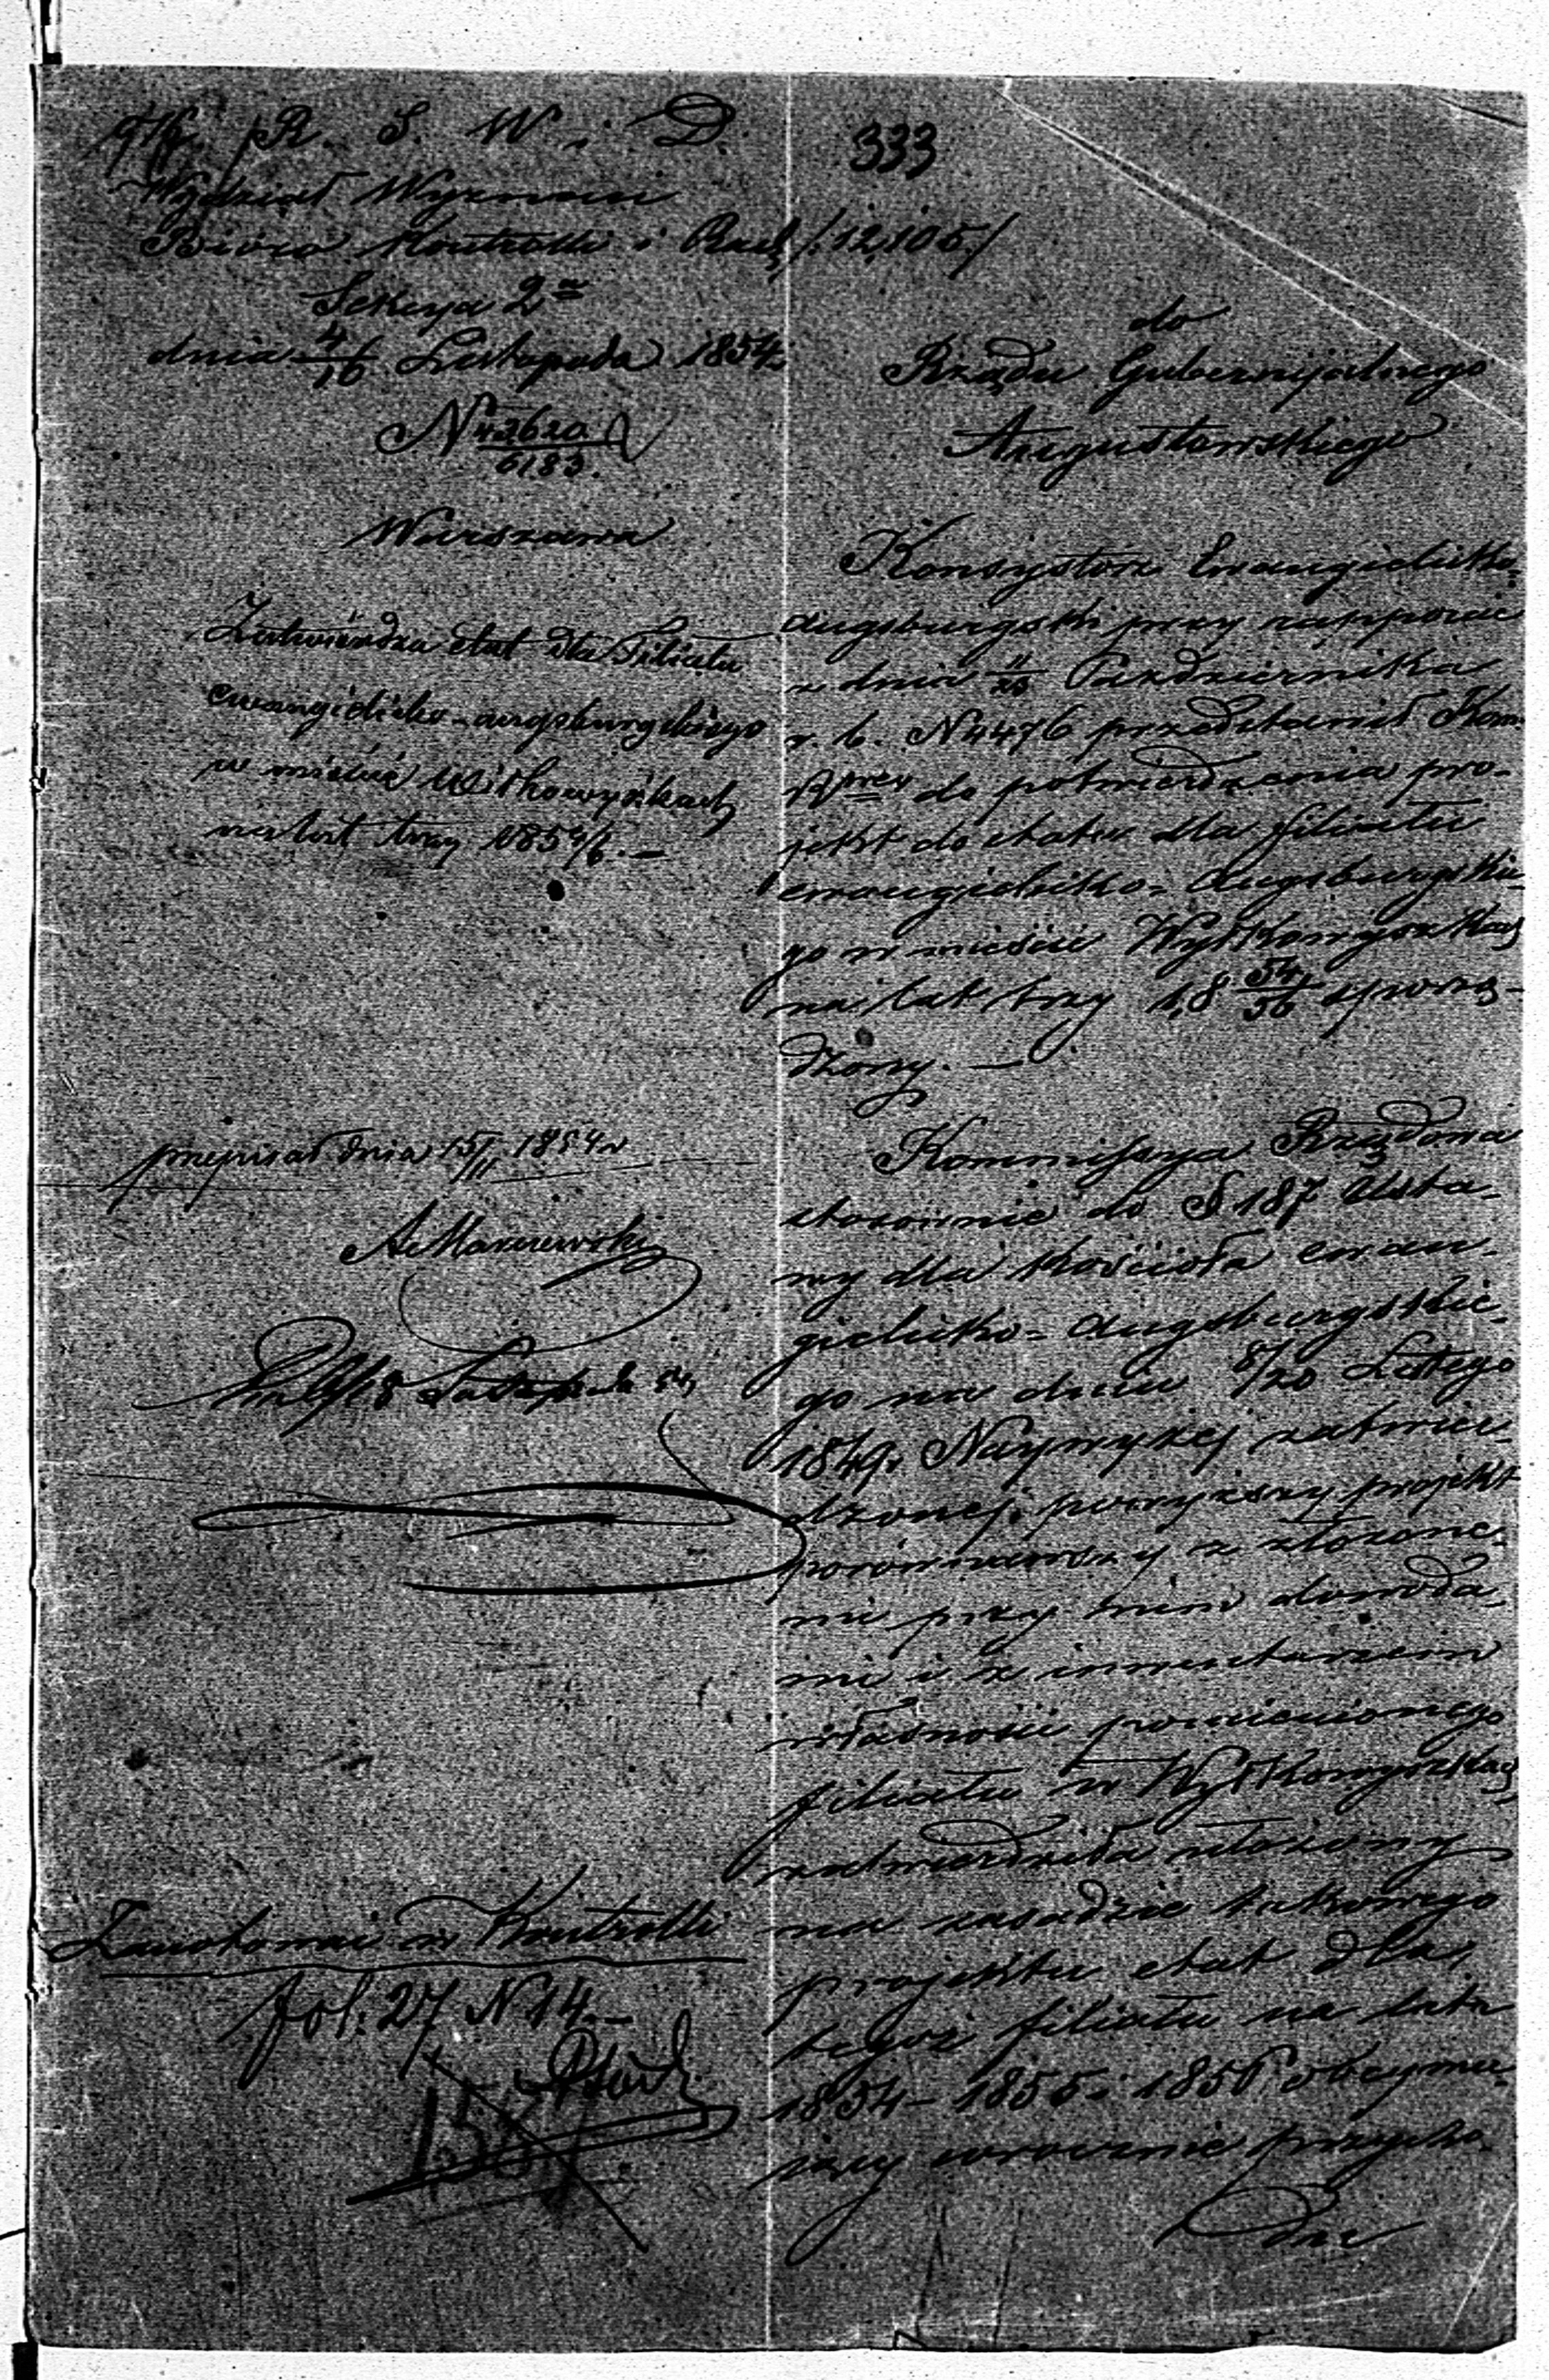 R. S. W. i D.
333
Wydział Wyznań
Biuro Kontrolli i Rach /:12,105/
Sekcya 2a
dnia 4/16 Listopada 1854
N 42620/6183.
Warszawa
Zatwierdza etat dla Filiału
ewangielicko-augsburgskiego
w mieście Wiłkowyszkach
na lat trzy 1854/6. —
przepisał dnia 15/11 1854 r
Zanotowano w Kontrolli
fol: 27 N 14. —
153
do
Rządu Gubernijalnego
Augustowskiego
Konsystorz Ewangielicko-
Augsburgski przy rapporcie
z dnia 11/23 Października
r. b. N 4476 przedstawił Kom.
R do potwierdzenia pro-
jekt do etatu dla filiału
ewangielicko-Augsburgskie-
go w mieście Wyłkowyszkach
na lat trzy 18 54/56 sporzą-
dzony. —
Kommissya Rządowa
stosownie do § 187 Usta-
wy dla Kościoła ewan-
gielicko-Augsburgskie-
go na dniu 8/20 Lutego
1849 r. Najwyżej zatwier-
dzonej, powyższy projekt
porównawszy z złożone-
mi przy nim dowoda-
mi i z inwentarzem
własności pomienionego
filiału w Wyłkowyszkach
zatwierdziła ułożony
na zasadzie takowego
projektu etat dla
tegoż filiału na lata
1854 – 1855 i 1856 obejmu-
jący w rocznie przycho-